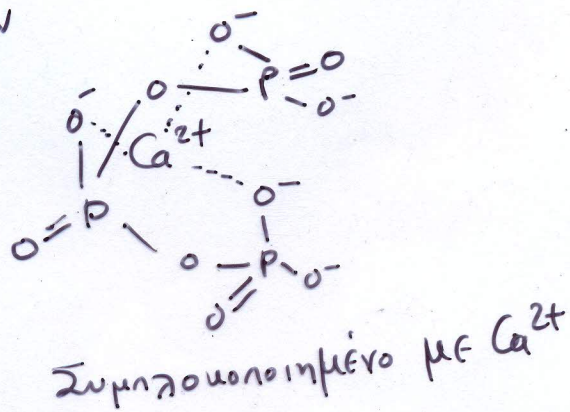 O⁻
O P = O
O⁻ O⁻
Ca²⁺
O⁻
P
O O P O⁻
O
Συμπλοκοποιημένο με Ca²⁺